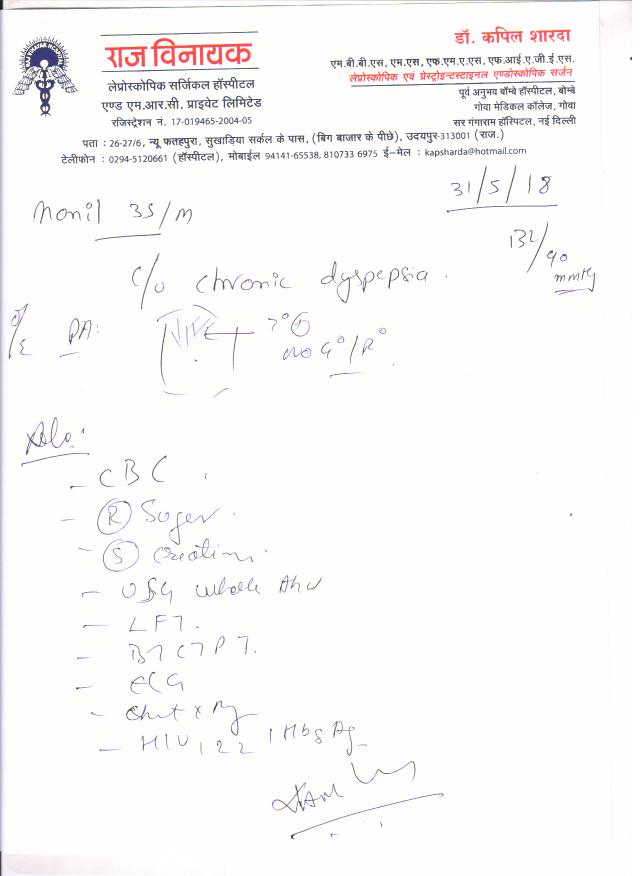 राज विनायक
लेप्रोस्कोपिक सर्जिकल हॉस्पीटल
एण्ड एम.आर.सी. प्राइवेट लिमिटेड
रजिस्ट्रेशन नं. 17-019465-2004-05
डॉ. कपिल शारदा
एम.बी.बी.एस, एम.एस, एफ.एम.ए.एस, एफ.आई.ए.जी.ई.एस.
लेप्रोस्कोपिक एवं गेस्ट्रोइन्टस्टाइनल एण्डोस्कोपिक सर्जन
पूर्व अनुभव बॉम्बे हॉस्पीटल, बोम्बे
गोवा मेडिकल कॉलेज, गोवा
सर गंगाराम हॉस्पिटल, नई दिल्ली
पता : 26-27/6, न्यू फतहपुरा, सुखाड़िया सर्कल के पास, (बिग बाजार के पीछे), उदयपुर-313001 (राज.)
टेलीफोन : 0294-5120661 (हॉस्पीटल), मोबाईल 94141-65538, 810733 6975 ई-मेल : kapsharda@hotmail.com
31/5/18
Monil 35/M
132/90 mmHg
c/o chronic dyspepsia.
o/E PA:
no G°/R°
Adv:
- CBC
- (R) Suger.
- (S) Creatinine
- USG whole Abd
- LFT.
- BT CT PT.
- ECG
- Chest x Ray